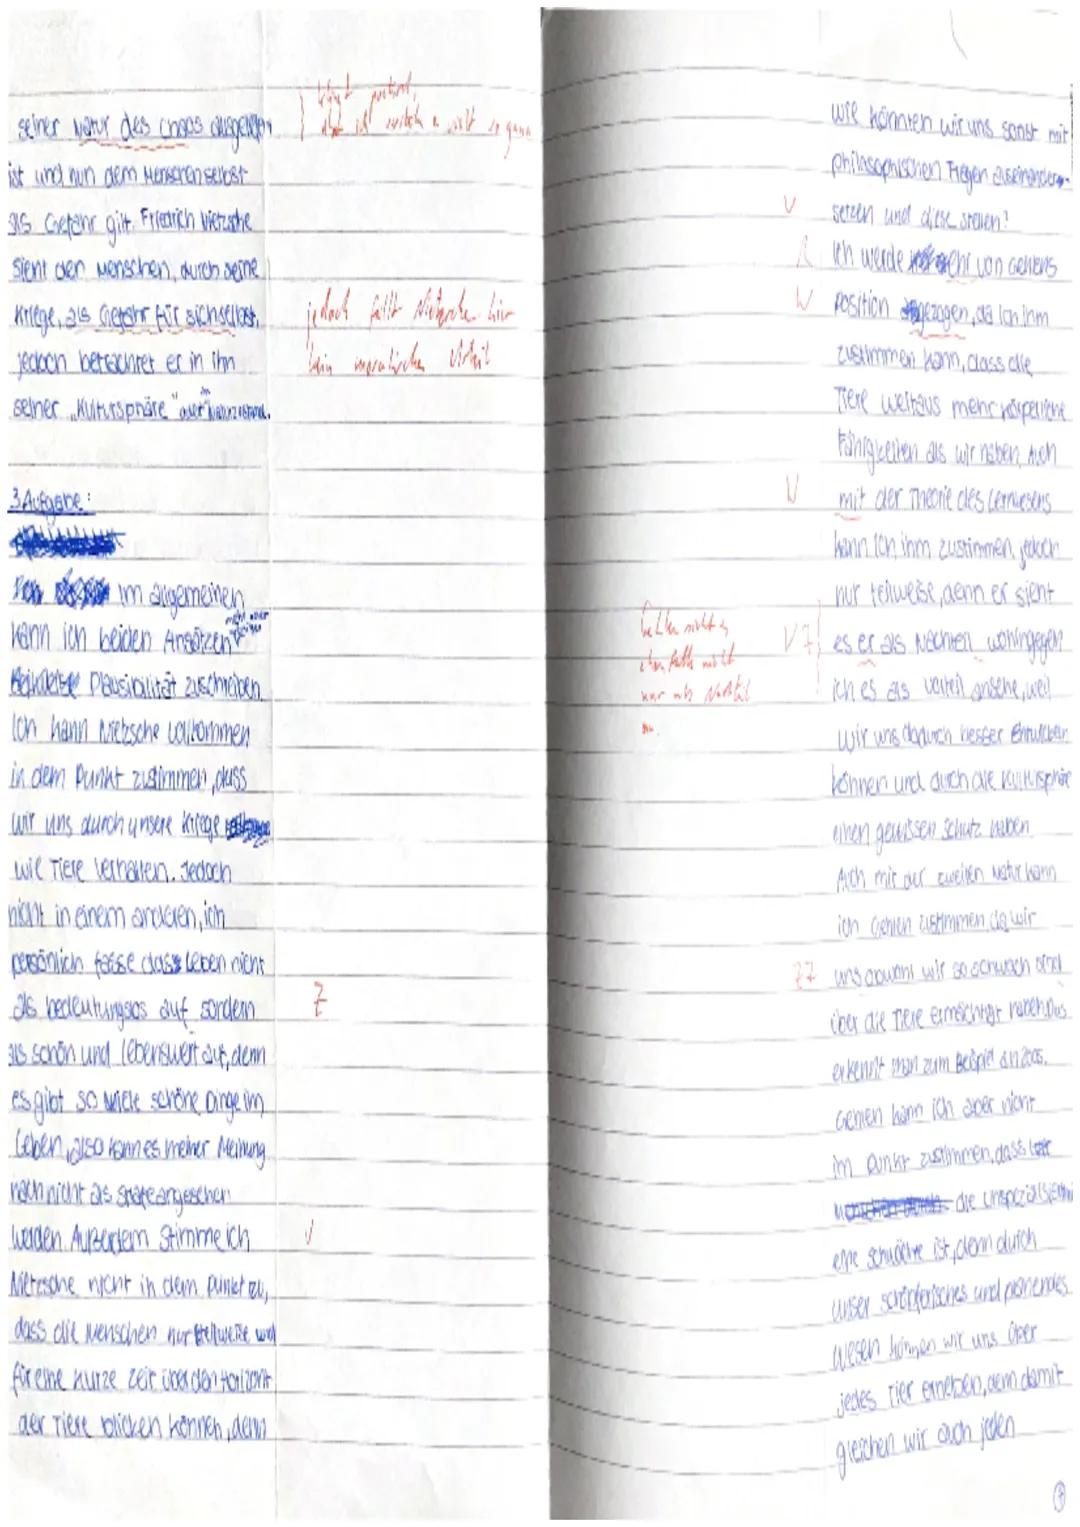 seiner Natur des Chaos ausgeliefert
ist und nun dem Menschen selbst
als Gefahr gilt. Friedrich Nietzsche
sieht den Menschen, durch seine
Kriege, als Gefahr für sich selbst,
jedoch betrachtet er in ihn
seiner „Kultursphäre"
jedoch fällt Nietzsche hier
kein moralisches Urteil
3 Aufgabe:
im allgemeinen
kann ich beiden Ansätzen
Plausibilität zuschreiben.
Ich kann Nietzsche vollkommen
in dem Punkt zustimmen, dass
wir uns durch unsere Kriege
wie Tiere verhalten. Jedoch
nicht in einem anderen, ich
persönlich fasse das Leben nicht
als bedeutungslos auf sondern
Z
als schön und lebenswert auf, denn
es gibt so viele schöne Dinge im
Leben, also kann es meiner Meinung
nach nicht als Strafe angesehen
werden. Außerdem Stimme ich
Nietzsche nicht in dem Punkt zu,
dass die Menschen nur
für eine kurze Zeit über den Horizont
der Tiere blicken können, denn
wie könnten wir uns sonst mit
philosophischen Fragen auseinander-
setzen und diese stellen?
R Ich werde von Gehlens
W Position angezogen, da ich ihm
zustimmen kann, dass die
Tiere weitaus mehr körperliche
Fähigkeiten als wir haben. Auch
mit der Theorie des Lernwesens
kann ich ihm zustimmen, jedoch
nur teilweise, denn er sieht
es er als Nachteil wohingegen
ich es als Vorteil ansehe, weil
wir uns dadurch besser Entwickeln
können und durch die Kultursphäre
einen gewissen Schutz haben.
Auch mit der zweiten Natur kann
ich Gehlen zustimmen, da wir
ZZ uns obwohl wir so schwach sind
über die Tiere ermächtigt haben. Das
erkennt man zum Beispiel an Zoos.
Gehlen kann ich aber nicht
im Punkt zustimmen, dass
die
eine Schwäche ist, denn durch
unser schöpferisches und planendes
Wesen können wir uns über
jedes Tier erheben, denn damit
gleichen wir auch jeden